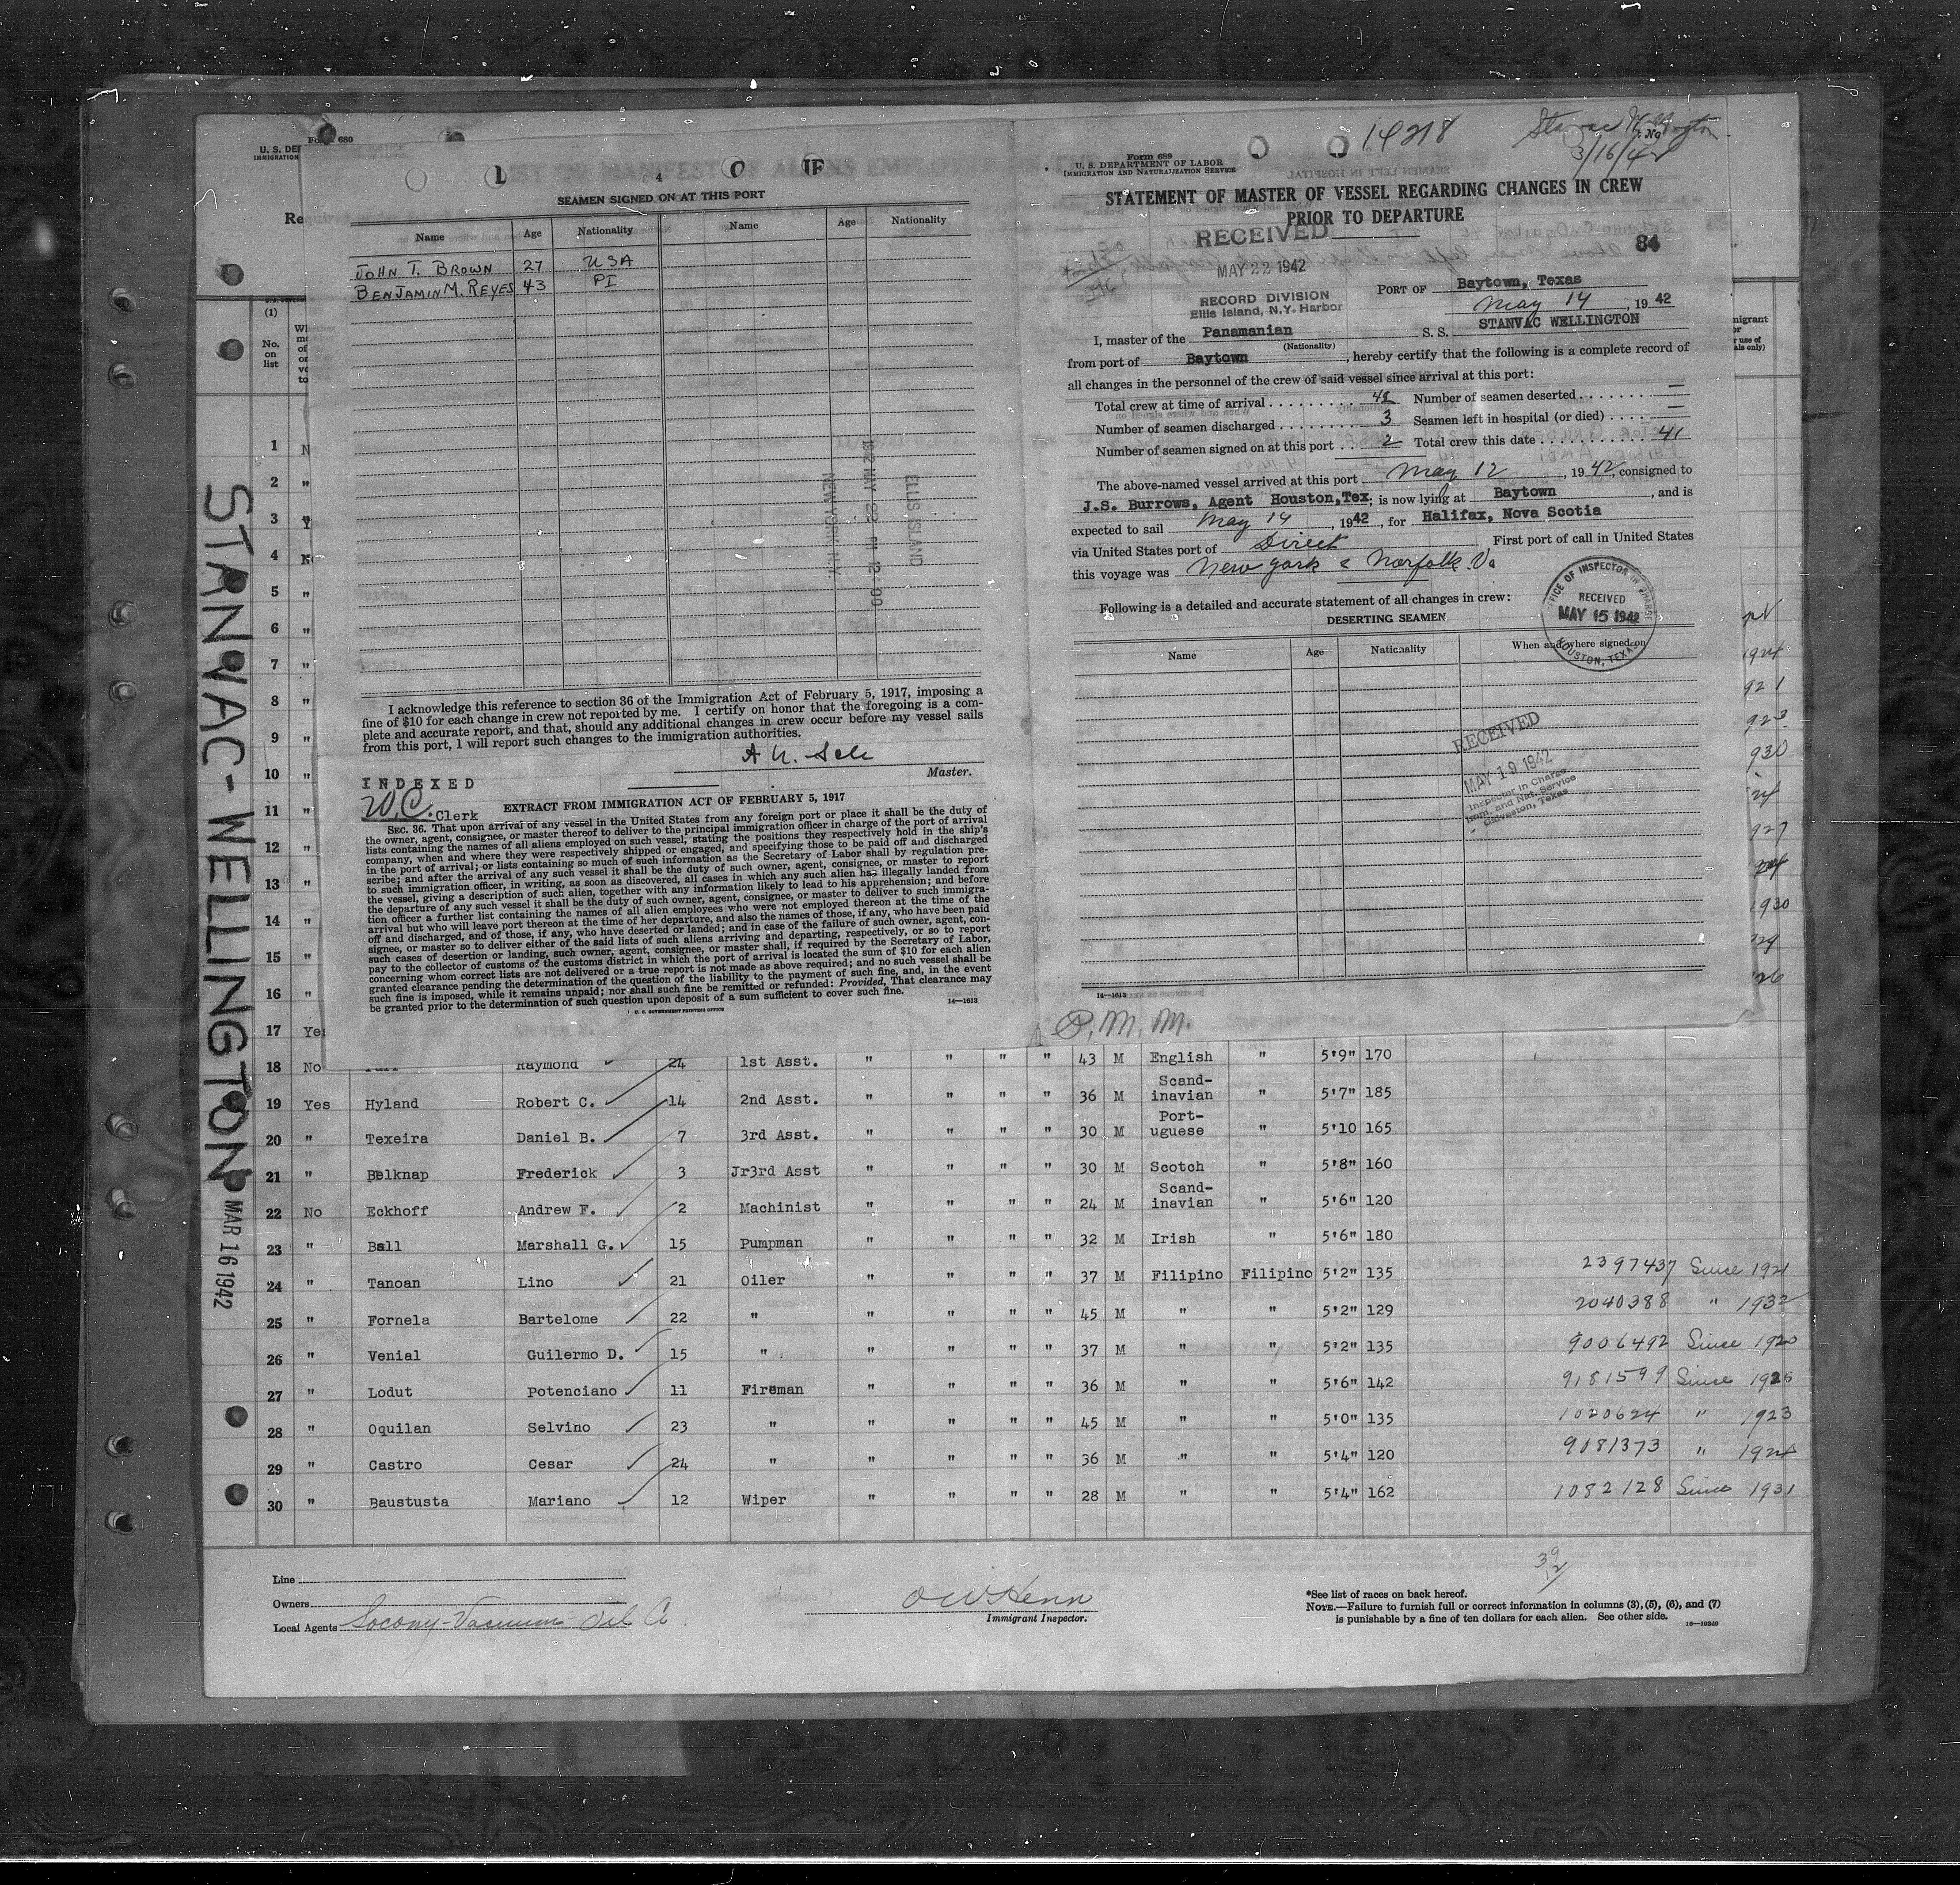 Form 680
U. S. DEF
IMMIGRATION
Re
SEAMEN SIGNED ON AT THIS PORT
Name Age Nationality Name Age Nationality
JOHN T. BROWN 27 USA
BENJAMIN M. REYES 43 PI
ELLIS ISLAND
1942 MAY 22 PM 12:00
NEW YORK N.Y.
I acknowledge this reference to section 36 of the Immigration Act of February 5, 1917, imposing a
fine of $10 for each change in crew not reported by me. I certify on honor that the foregoing is a com-
plete and accurate report, and that, should any additional changes in crew occur before my vessel sails
from this port, I will report such changes to the immigration authorities.
Master.
INDEXED
W.C. Clerk
EXTRACT FROM IMMIGRATION ACT OF FEBRUARY 5, 1917
SEC. 36. That upon arrival of any vessel in the United States from any foreign port or place it shall be the duty of
the owner, agent, consignee, or master thereof to deliver to the principal immigration officer in charge of the port of arrival
lists containing the names of all aliens employed on such vessel, stating the positions they respectively hold in the ship's
company, when and where they were respectively shipped or engaged, and specifying those to be paid off and discharged
in the port of arrival; or lists containing so much of such information as the Secretary of Labor shall by regulation pre-
scribe; and after the arrival of any such vessel it shall be the duty of such owner, agent, consignee, or master to report
to such immigration officer, in writing, as soon as discovered, all cases in which any such alien has illegally landed from
the vessel, giving a description of such alien, together with any information likely to lead to his apprehension; and before
the departure of any such vessel it shall be the duty of such owner, agent, consignee, or master to deliver to such immigra-
tion officer a further list containing the names of all alien employees who were not employed thereon at the time of the
arrival but who will leave port thereon at the time of her departure, and also the names of those, if any, who have been paid
off and discharged, and of those, if any, who have deserted or landed; and in case of the failure of such owner, agent, con-
signee, or master so to deliver either of the said lists of such aliens arriving and departing, respectively, or so to report
such cases of desertion or landing, such owner, agent, consignee, or master shall, if required by the Secretary of Labor,
pay to the collector of customs of the customs district in which the port of arrival is located the sum of $10 for each alien
concerning whom correct lists are not delivered or a true report is not made as above required; and no such vessel shall be
granted clearance pending the determination of the question of the liability to the payment of such fine, and, in the event
such fine is imposed, while it remains unpaid; nor shall such fine be remitted or refunded: Provided, That clearance may
be granted prior to the determination of such question upon deposit of a sum sufficient to cover such fine.
14—1613
U. S. GOVERNMENT PRINTING OFFICE
14218
3/16/42
Form 689
U. S. DEPARTMENT OF LABOR
IMMIGRATION AND NATURALIZATION SERVICE
STATEMENT OF MASTER OF VESSEL REGARDING CHANGES IN CREW
PRIOR TO DEPARTURE
RECEIVED
MAY 22 1942
RECORD DIVISION
Ellis Island, N.Y. Harbor
84
PORT OF Baytown, Texas
May 14, 1942
I, master of the Panamanian S. S. STANVAC WELLINGTON
(Nationality)
from port of Baytown, hereby certify that the following is a complete record of
all changes in the personnel of the crew of said vessel since arrival at this port:
Total crew at time of arrival 42 Number of seamen deserted —
Number of seamen discharged 3 Seamen left in hospital (or died) —
Number of seamen signed on at this port 2 Total crew this date 41
The above-named vessel arrived at this port May 12, 1942, consigned to
J.S. Burrows, Agent Houston, Tex; is now lying at Baytown, and is
expected to sail May 14, 1942, for Halifax, Nova Scotia
via United States port of Direct First port of call in United States
this voyage was New York & Norfolk Va
Following is a detailed and accurate statement of all changes in crew:
DESERTING SEAMEN
Name Age Nationality When and where signed on
OFFICE OF INSPECTOR IN CHARGE
RECEIVED
MAY 15 1942
HOUSTON, TEXAS
RECEIVED
MAY 19 1942
Inspector in Charge
Imm. and Nat. Service
Galveston, Texas
14—1613
P.M.M.
STANVAC-WELLINGTON MAR 16 1942
(1)
No. on list
1 N
2 "
3
4
5 "
6 "
7 "
8 "
9 "
10 "
11 "
12 "
13 "
14 "
15 "
16 "
17 Yes
18 No Raymond 24 1st Asst. " " " " 43 M English " 5'9" 170
19 Yes Hyland Robert C. 14 2nd Asst. " " " " 36 M Scand-inavian " 5'7" 185
20 " Texeira Daniel B. 7 3rd Asst. " " " " 30 M Port-uguese " 5'10 165
21 " Belknap Frederick 3 Jr3rd Asst " " " " 30 M Scotch " 5'8" 160
22 No Eckhoff Andrew F. 2 Machinist " " " " 24 M Scand-inavian " 5'6" 120
23 " Ball Marshall G. 15 Pumpman " " " " 32 M Irish " 5'6" 180
24 " Tanoan Lino 21 Oiler " " " " 37 M Filipino Filipino 5'2" 135 2397437 Since 1921
25 " Fornela Bartelome 22 " " " " " 45 M " " 5'2" 129 2040388 " 1932
26 " Venial Guilermo D. 15 " " " " " 37 M " " 5'2" 135 9006492 Since 1920
27 " Lodut Potenciano 11 Fireman " " " " 36 M " " 5'6" 142 9181599 Since 1926
28 " Oquilan Selvino 23 " " " " " 45 M " " 5'0" 135 1020624 " 1923
29 " Castro Cesar 24 " " " " " 36 M " " 5'4" 120 9081373 " 1924
30 " Baustusta Mariano 12 Wiper " " " " 28 M " " 5'4" 162 1082128 Since 1931
Line
Owners
Local Agents Socony-Vacuum Oil
O W Henn
Immigrant Inspector.
39/2
*See list of races on back hereof.
NOTE.—Failure to furnish full or correct information in columns (3), (5), (6), and (7)
is punishable by a fine of ten dollars for each alien. See other side.
16—19349